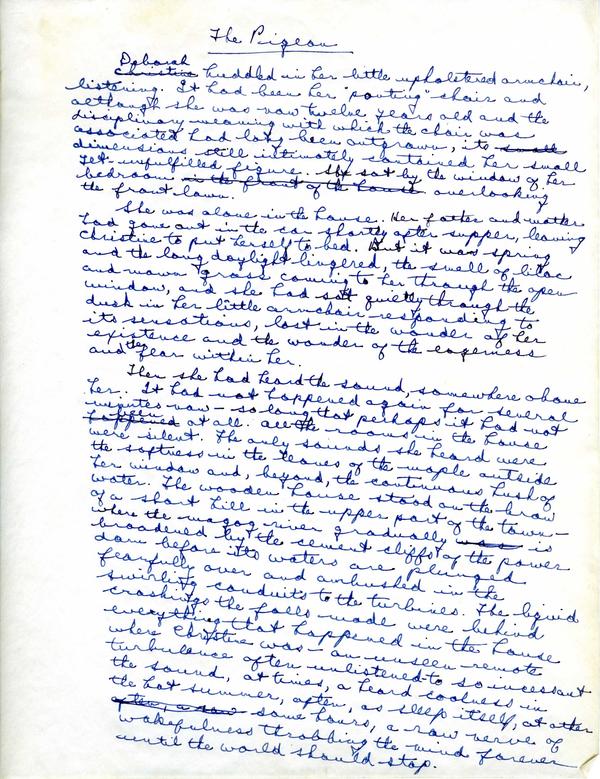 The Pigeon
Deborah
Christine huddled in her little upholstered armchair,
listening. It had been her "pouting" chair and
although she was now twelve years old and the
disciplinary meaning with which the chair was
associated had long been outgrown, its small
dimensions still intimately contained her small
yet unfulfilled figure. She sat by the window of her
bedroom in the front of the house overlooking
the front lawn.
She was alone in the house. Her father and mother
had gone out in the car shortly after supper, leaving
Christine to put herself to bed. But it was spring
and the long daylight lingered, the smell of lilac
and mown grass coming to her through the open
window, and she had sat quietly through the
dusk in her little armchair responding to
its sensations, lost in the wonder of her
existence and the wonder of the eagerness
and the fear within her.
Then she had heard the sound, somewhere above
her. It had not happened again for several
minutes now – so long that perhaps it had not
been
happened at all. All the rooms in the house
were silent. The only sounds she heard were
the softness in the leaves of the maple outside
her window and, beyond, the continuous hush of
water. The wooden house stood on the brow
of a short hill in the upper part of the town –
where the magog river gradually was is
broadened by the cement cliffs of the power
dam before its waters are plunged
fearfully over and ambushed in the
swirling conduits to the turbines. The liquid
crashings the falls made were behind
everything that happened in the house
where Christine was – an unseen remote
turbulence often unlistened-to so incessant
the sound, at times, a heard coolness in
the hot summer, often, as sleep itself, at other
often, a raw some hours, a raw nerve of
wakefulness throbbing the mind forever
until the world should stop.